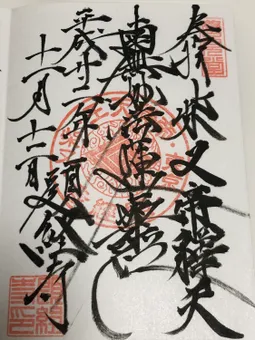 奉拝 柴又帝釋天
南無妙法蓮華経
平成廿二年
十一月十二日 題経寺